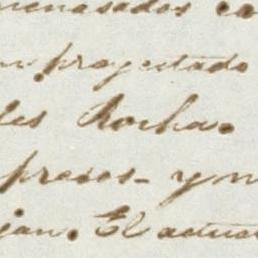 menasados en
proyectado
les Rocha.
presos - y n
jan. El actua